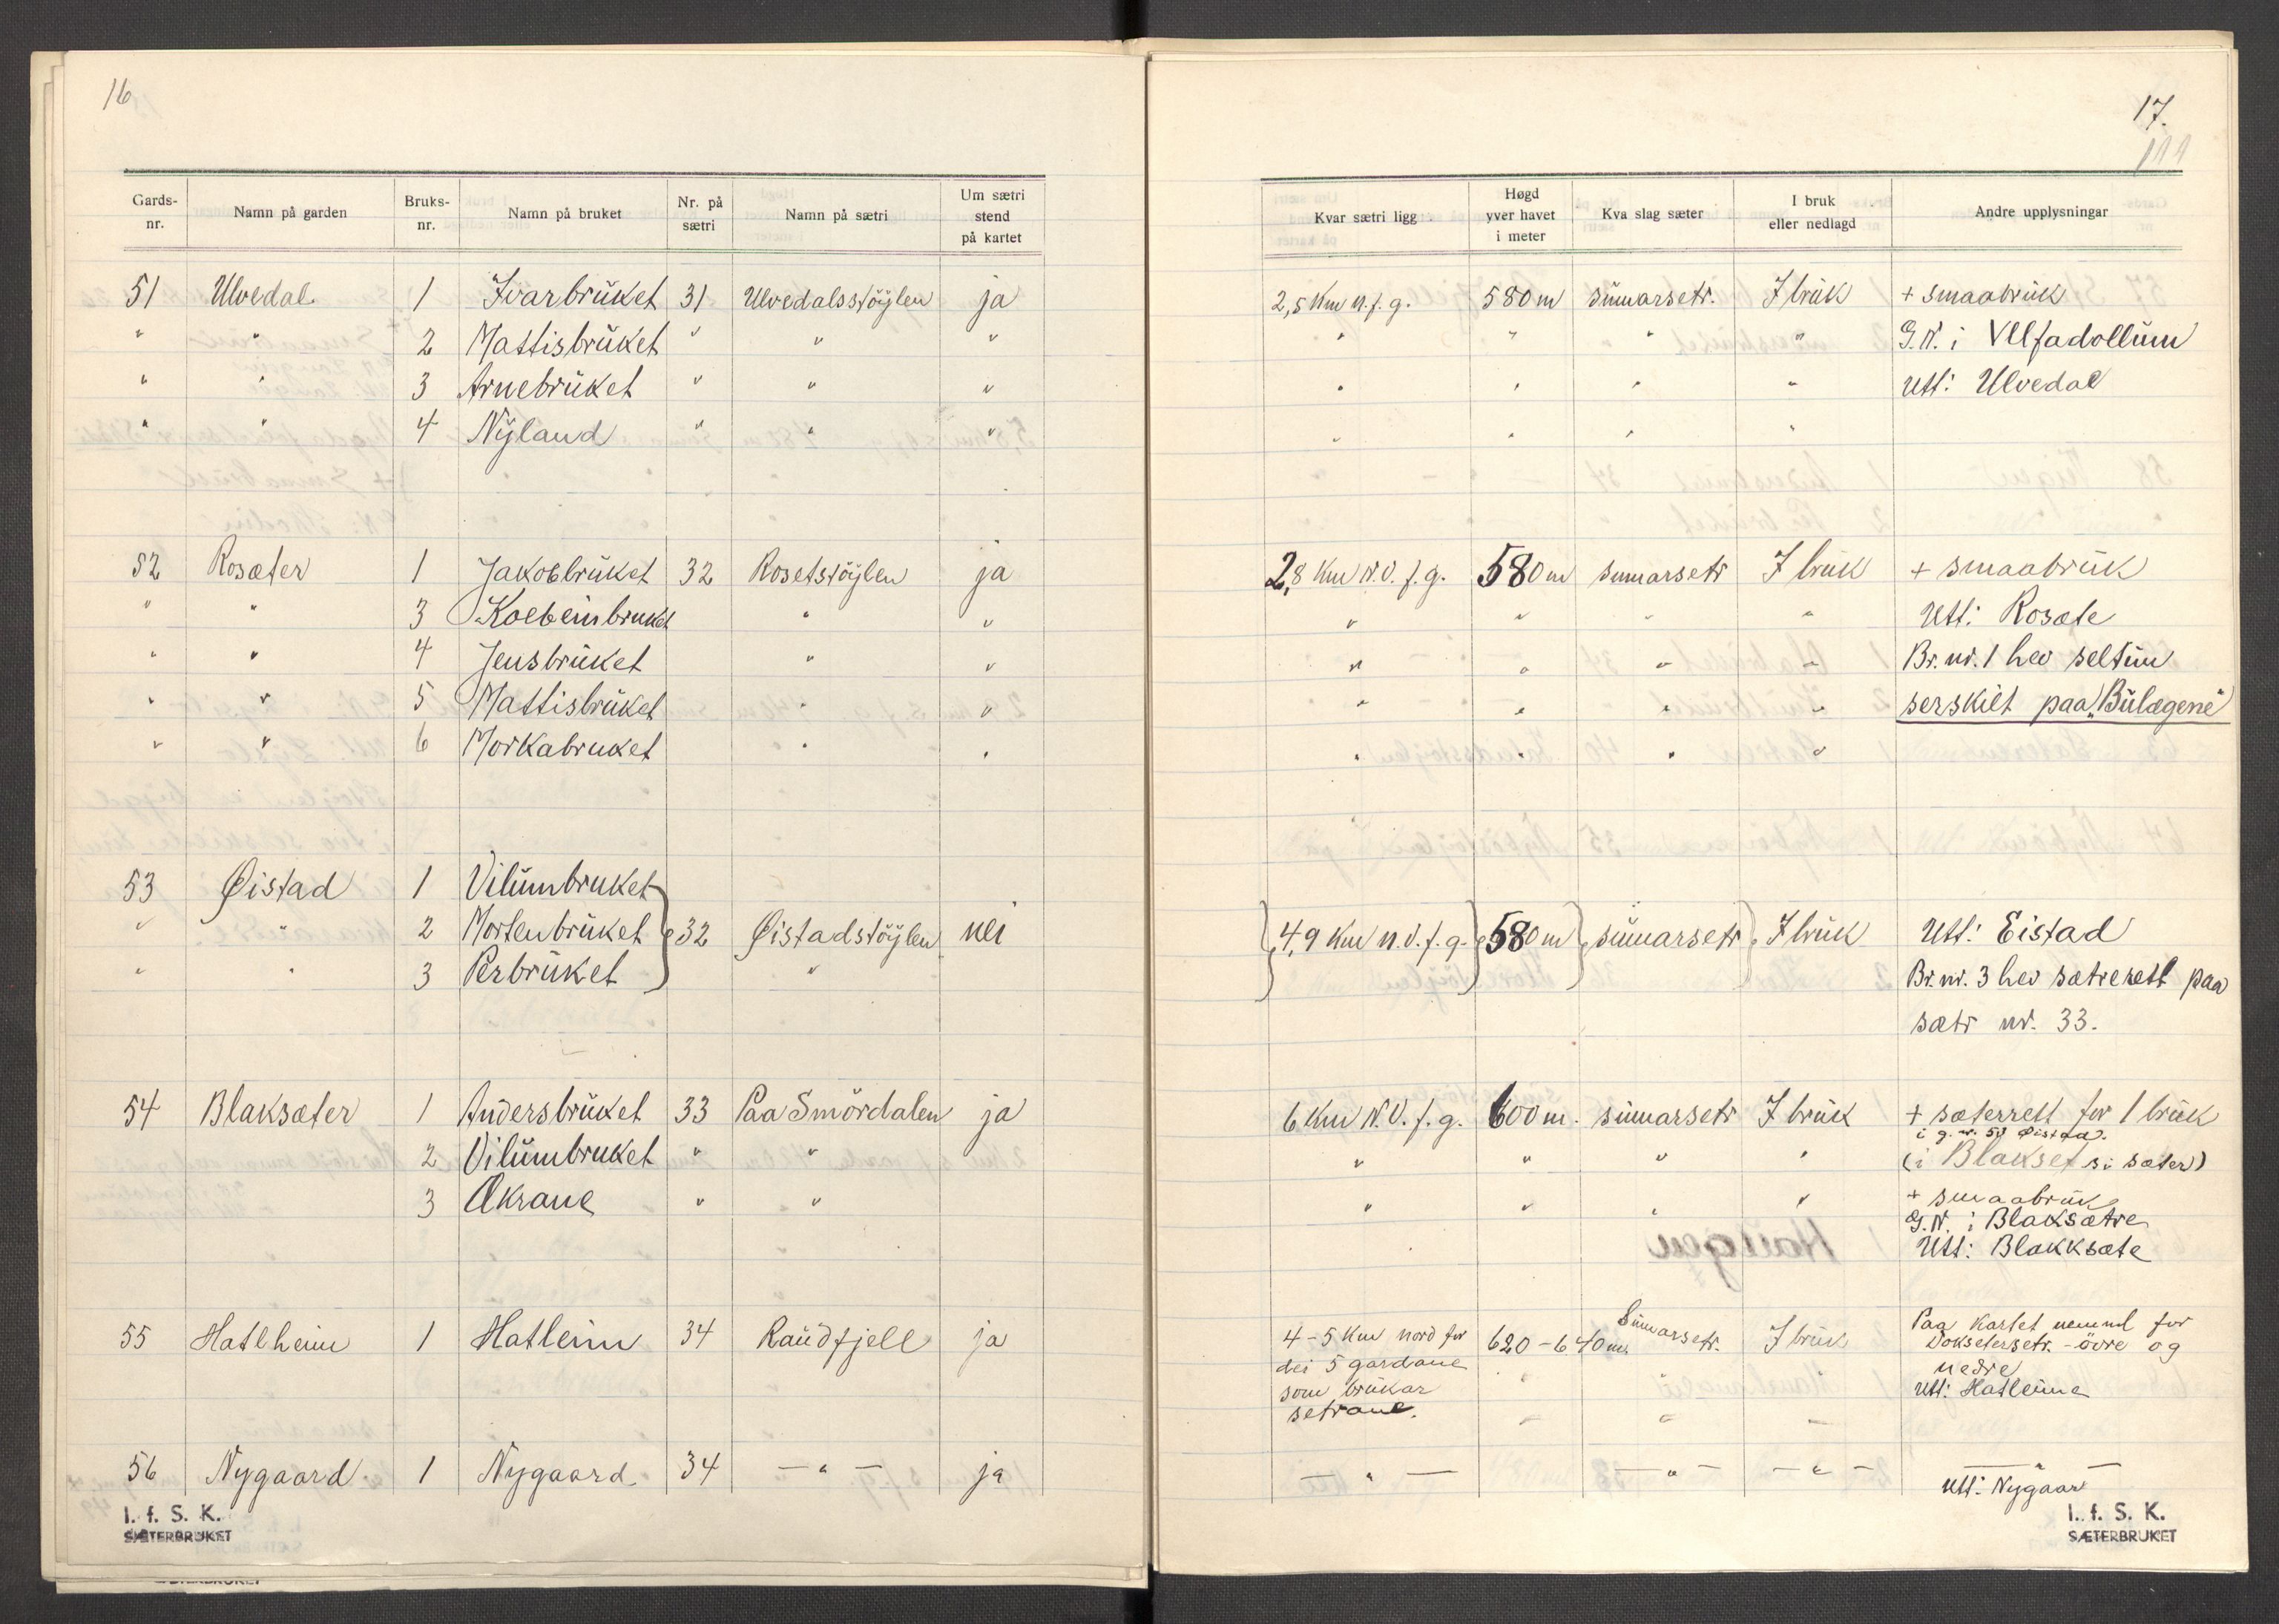 16
Gards-nr. Namn på garden Bruks-nr. Namn på bruket Nr. på sætri Namn på sætri Um sætri stend på kartet
51 Ulvedal 1 Ivarbrüket 31 Ulvedalsstöylen ja
" " 2 Mattisbrüket " " "
" " 3 Arnebrüket " " "
" " 4 Nÿland " " "
52 Rosæter 1 Jakobbrüket 32 Rosetstöylen ja
" " 3 Kolbeinbruket " "
" " 4 Jensbrüket " "
" " 5 Mattisbrüket " "
" " 6 Morkabruket " "
53 Øistad 1 Vilümbruket
" " 2 Mortenbrüket 32 Øistadstöylen nei
" " 3 Perbrüket "
54 Blaksæter 1 Andersbrüket 33 Paa Smördalen ja
2 Vilümbruket " "
3 Økrane " "
55 Hatlheim 1 Hatleim 34 Raüdfjell ja
56 Nygaard 1 Nygaard 34 — " — ja
I. f. S. K.
SÆTERBRUKET
17.
111
Kvar sætri ligg Høgd yver havet i meter Kva slag sæter I bruk eller nedlagd Andre upplysningar
2,5 Km n. f. g. 580 m sümarsetr. I brük + smaabrük
" " " " G.N. i Vllfadollüm
" " " " Utt: Ulvedal
" " " "
2,8 Km N.V. f. g. 580 m sumarsetr I bruk + smaabrük
" " " " Utt: Rosæte
" " " " Br. nr. 1 hev seltün
" " " " serskilt paa „Bülægene"
" " " "
4,9 Km n.v. f. g. 580 m sümarsetr I brük Utt: Eistad
Br. nr. 3 hev sætrerett paa
sætr nr. 33.
6 Km N.V. f. g. 600 m. sümarsetr I brük + sæterrett for 1 brük
i g. nr. 53 Øistad.
" " " " (i Blakset si sæter)
" " " " + smaabrük
G.N. i Blaksætre
Utt: Blakksæte
4-5 Km nord for 620-640 m. Sümarsetr. I brük Paa kartet nemnd for
dei 5 gardane Voksetersetr. - övre og
som brükar " " nedre
setrane. Utt: Hatleime
— " — — " — — " — — " —
utt: Nygaar
I. f. S. K.
SÆTERBRUKET